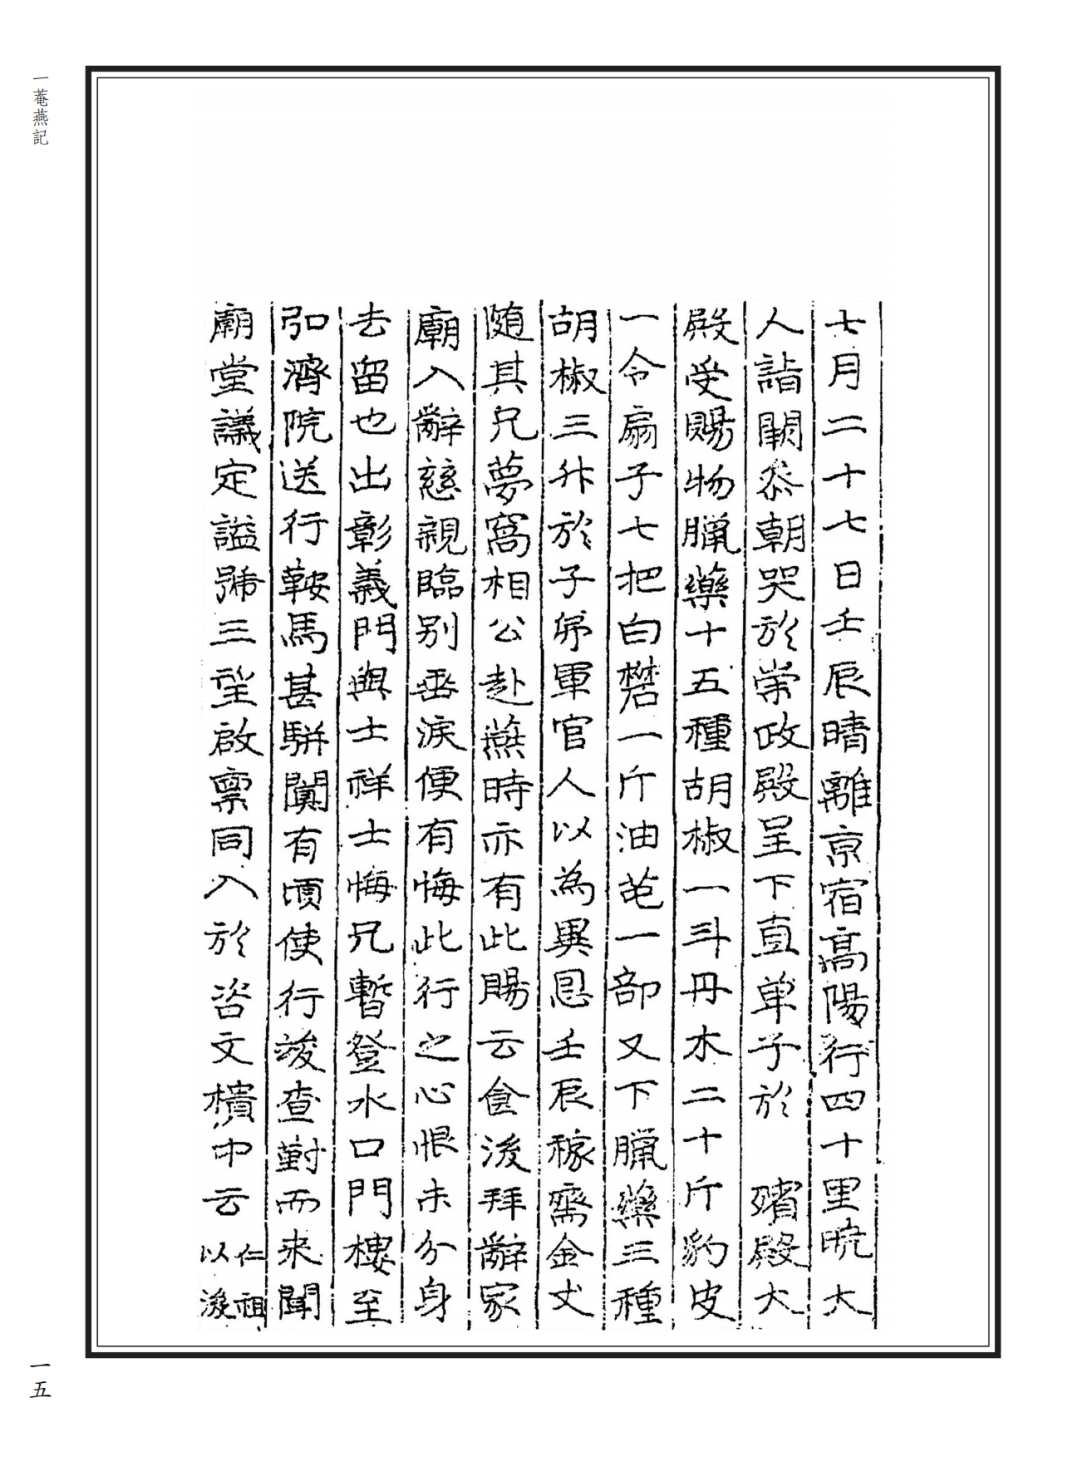 一菴燕記
七月二十七日壬辰晴離京宿高陽行四十里曉大
人詣闕叅朝哭於崇政殿呈下直單子於 殯殿大
殿受賜物臘藥十五種胡椒一斗丹木二十斤豹皮
一令扇子七把白礬一斤油芚一部又下臘藥三種
胡椒三升於子弟軍官人以為異恩壬辰稼齋金丈
隨其兄夢窩相公赴燕時亦有此賜云食後拜辭家
廟入辭慈親臨別垂淚便有悔此行之心恨未分身
去留也出彰義門與士祥士悔兄暫登水口門樓至
弘濟院送行鞍馬甚駢闐有頃使行竣查對而來聞
廟堂議定謚號三望啟稟同入於咨文樻中云仁祖
以後
一五